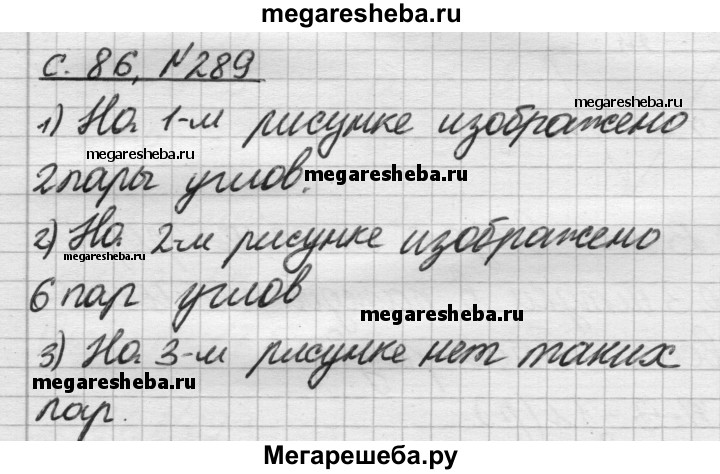 megaresheba.ru
с. 86, №289
1) На 1-м рисунке изображено
megaresheba.ru
megaresheba.ru
2 пары углов.
megaresheba.ru
2) На 2-м рисунке изображено
megaresheba.ru
6 пар углов
megaresheba.ru
3) На 3-м рисунке нет таких
megaresheba.ru
пар.
Мегарешеба.ру